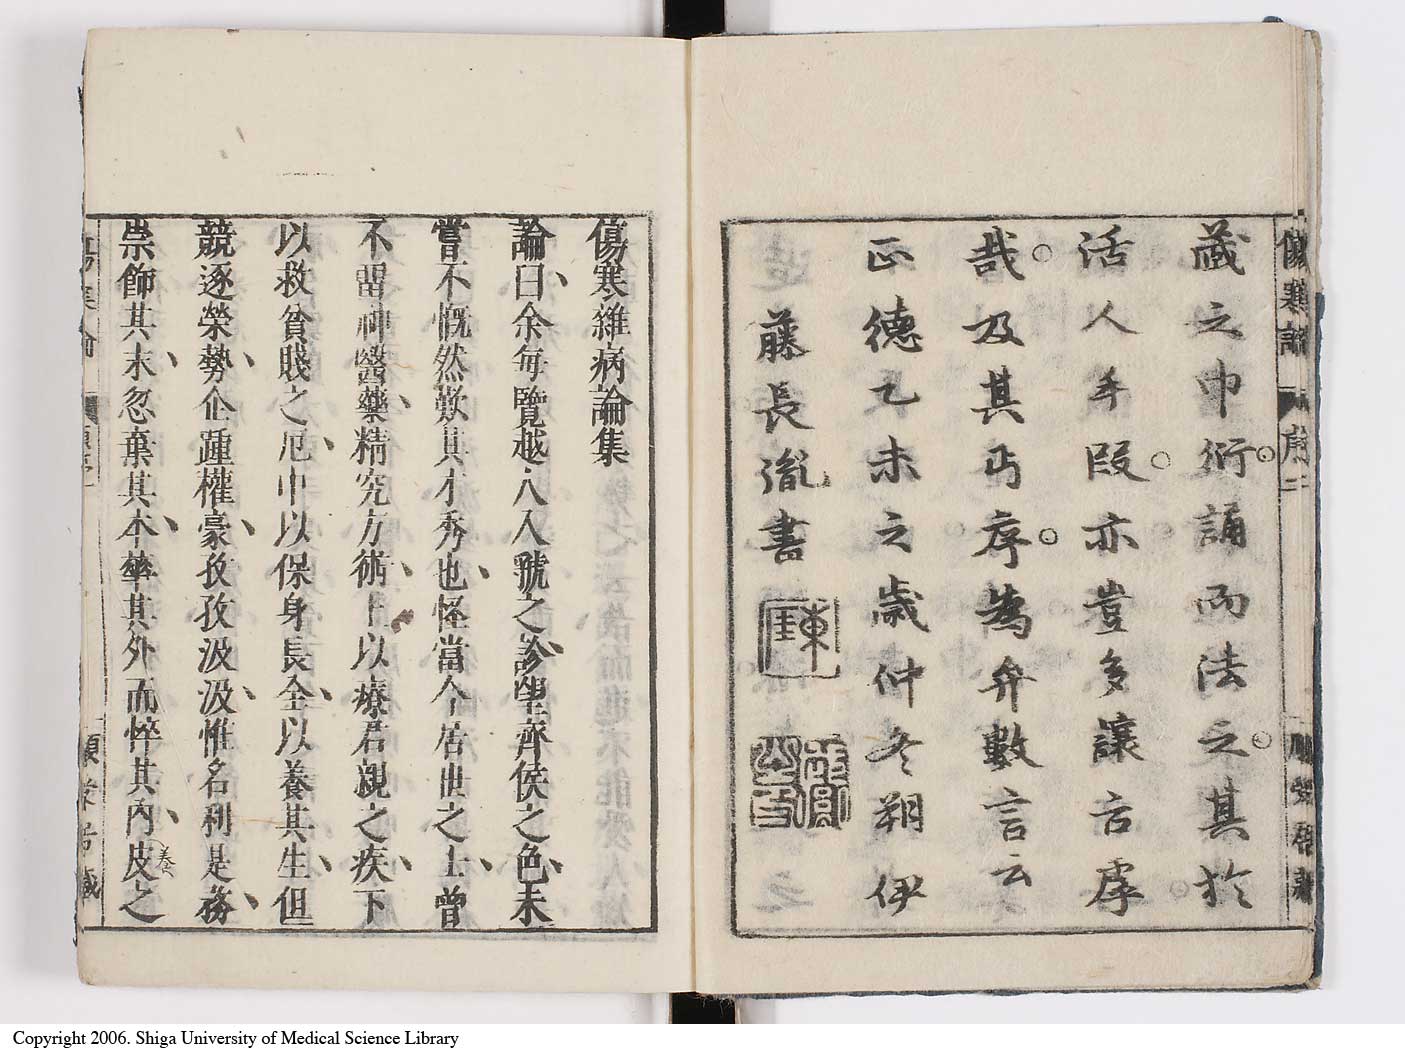 傷寒論 序 二
藏之巾衍誦而法之其於
活人手段亦豈多讓古虖
哉及其丐序為弁數言云
正德乙未之歲仲冬朔伊
藤長胤書
傷寒雜病論集
論曰余每覽越人入虢之診望齊侯之色未
嘗不慨然歎其才秀也怪當今居世之士曾
不留神醫藥精究方術上以療君親之疾下
以救貧賤之厄中以保身長全以養其生但
競逐榮勢企踵權豪孜孜汲汲惟名利是務
崇飾其末忽棄其本華其外而悴其內皮之
Copyright 2006. Shiga University of Medical Science Library